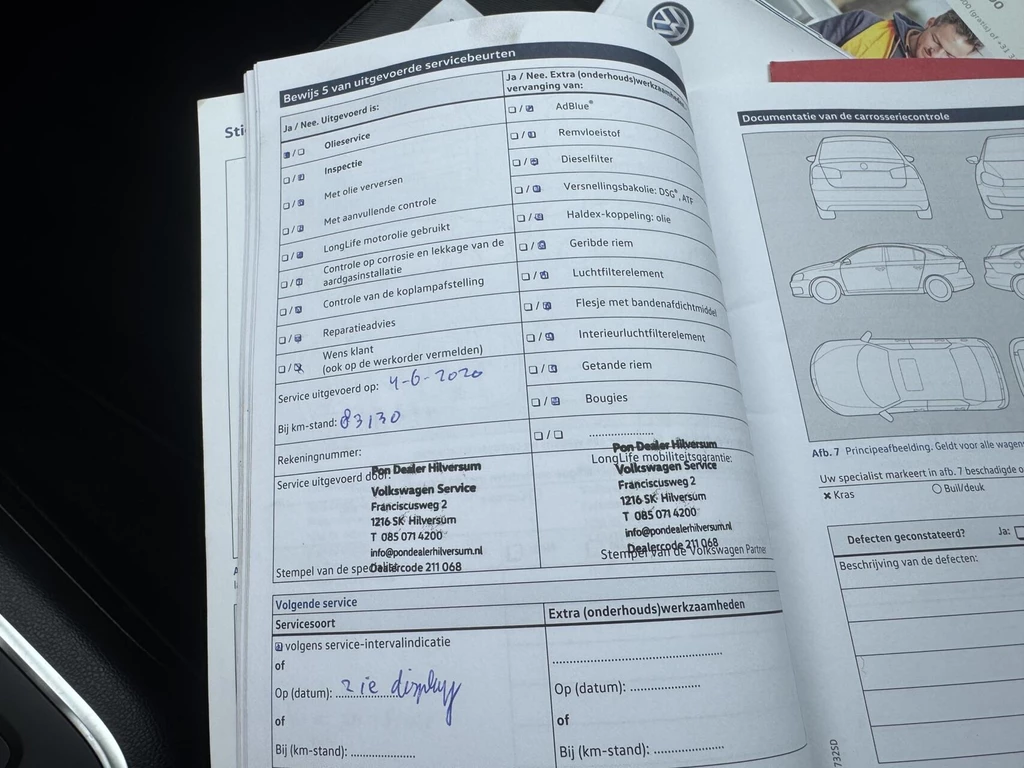 Bewijs 5 van uitgevoerde servicebeurten
Ja / Nee. Uitgevoerd is:
Olieservice
Inspectie
Met olie verversen
Met aanvullende controle
LongLife motorolie gebruikt
Controle op corrosie en lekkage van de
aardgasinstallatie
Controle van de koplampafstelling
Reparatieadvies
Wens klant
(ook op de werkorder vermelden)
Service uitgevoerd op: 4-6-2020
Bij km-stand: 83130
Rekeningnummer:
Service uitgevoerd door:
Pon Dealer Hilversum
Volkswagen Service
Franciscusweg 2
1216 SK Hilversum
T 085 071 4200
info@pondealerhilversum.nl
Dealercode 211 068
Stempel van de
Ja / Nee. Extra (onderhouds)werkzaamheden
vervanging van:
AdBlue®
Remvloeistof
Dieselfilter
Versnellingsbakolie: DSG®, ATF
Haldex-koppeling: olie
Geribde riem
Luchtfilterelement
Flesje met bandenafdichtmiddel
Interieurluchtfilterelement
Getande riem
Bougies
Pon Dealer Hilversum
LongLife mobiliteitsgarantie:
Volkswagen Service
Franciscusweg 2
1216 SK Hilversum
T 085 071 4200
info@pondealerhilversum.nl
Dealercode 211 068
Stempel van de Volkswagen Partner
Volgende service
Servicesoort
volgens service-intervalindicatie
of
Op (datum): zie display
of
Bij (km-stand):
Extra (onderhouds)werkzaamheden
Op (datum):
of
Bij (km-stand):
Documentatie van de carrosseriecontrole
Afb. 7 Principeafbeelding. Geldt voor alle
Uw specialist markeert in afb. 7 beschadigde
x Kras
O Buil/deuk
Defecten geconstateerd? Ja:
Beschrijving van de defecten: